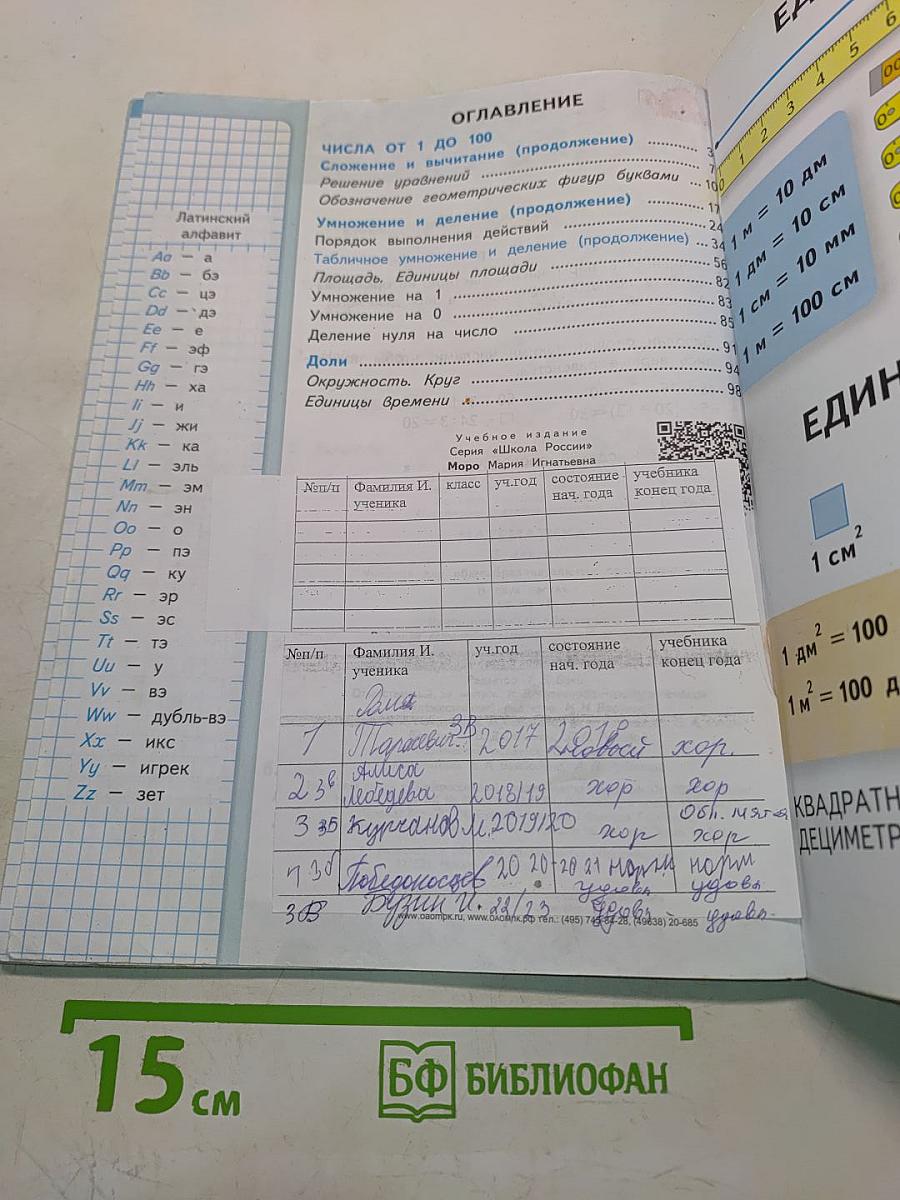 Латинский
алфавит
Aa – а
Bb – бэ
Cc – цэ
Dd – дэ
Ee – е
Ff – эф
Gg – гэ
Hh – ха
Ii – и
Jj – жи
Kk – ка
Ll – эль
Mm – эм
Nn – эн
Oo – о
Pp – пэ
Qq – ку
Rr – эр
Ss – эс
Tt – тэ
Uu – у
Vv – вэ
Ww – дубль-вэ
Xx – икс
Yy – игрек
Zz – зет
ОГЛАВЛЕНИЕ
ЧИСЛА ОТ 1 ДО 100
Сложение и вычитание (продолжение) ........... 3
Решение уравнений ........... 7
Обозначение геометрических фигур буквами ... 10
Умножение и деление (продолжение) ........... 17
Порядок выполнения действий ........... 24
Табличное умножение и деление (продолжение) ... 34
Площадь. Единицы площади ........... 56
Умножение на 1 ........... 82
Умножение на 0 ........... 83
Деление нуля на число ........... 85
Доли ........... 91
Окружность. Круг ........... 94
Единицы времени ........... 98
Учебное издание
Серия «Школа России»
Моро Мария Игнатьевна
№п/п Фамилия И. ученика класс уч.год состояние нач. года учебника конец года
№п/п Фамилия И. ученика уч.год состояние нач. года учебника конец года
1 3В 2017 2018 новый хор.
2 3в Алиса Лебедева 2018/19 хор хор
3 3Б Курчанов М. 2019/20 хор Обл. мятая хор
3б Победоносцев 2020-2021 норм удовл норм удовл
3В Бузин И. 22/23 удовл удовл.
www.oaompk.ru, www.оаомпк.рф тел.: (495) 745-84-28, (49638) 20-685
0 1 2 3 4 5 6
1 м = 10 дм
1 дм = 10 см
1 см = 10 мм
1 м = 100 см
ЕДИН
1 см²
1 дм² = 100
1 м² = 100 д
КВАДРАТН
ДЕЦИМЕТР
15 см
БФ БИБЛИОФАН